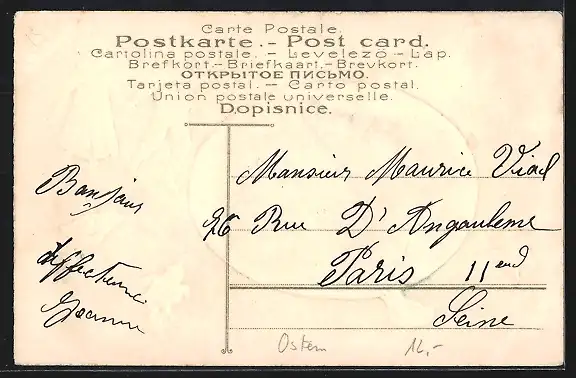 Carte Postale.
Postkarte. - Post card.
Cartolina postale. - Levelező - Lap.
Brefkort. - Briefkaart. - Brevkort.
ОТКРЫТОЕ ПИСЬМО.
Tarjeta postal. - Carto postal.
Union postale universelle.
Dopisnice.
Monsieur Maurice Vial
26 Rue D'Angouleme
Paris 11end
Seine
Bonjour
Affectueux
Jeanne
Ostern 12,-